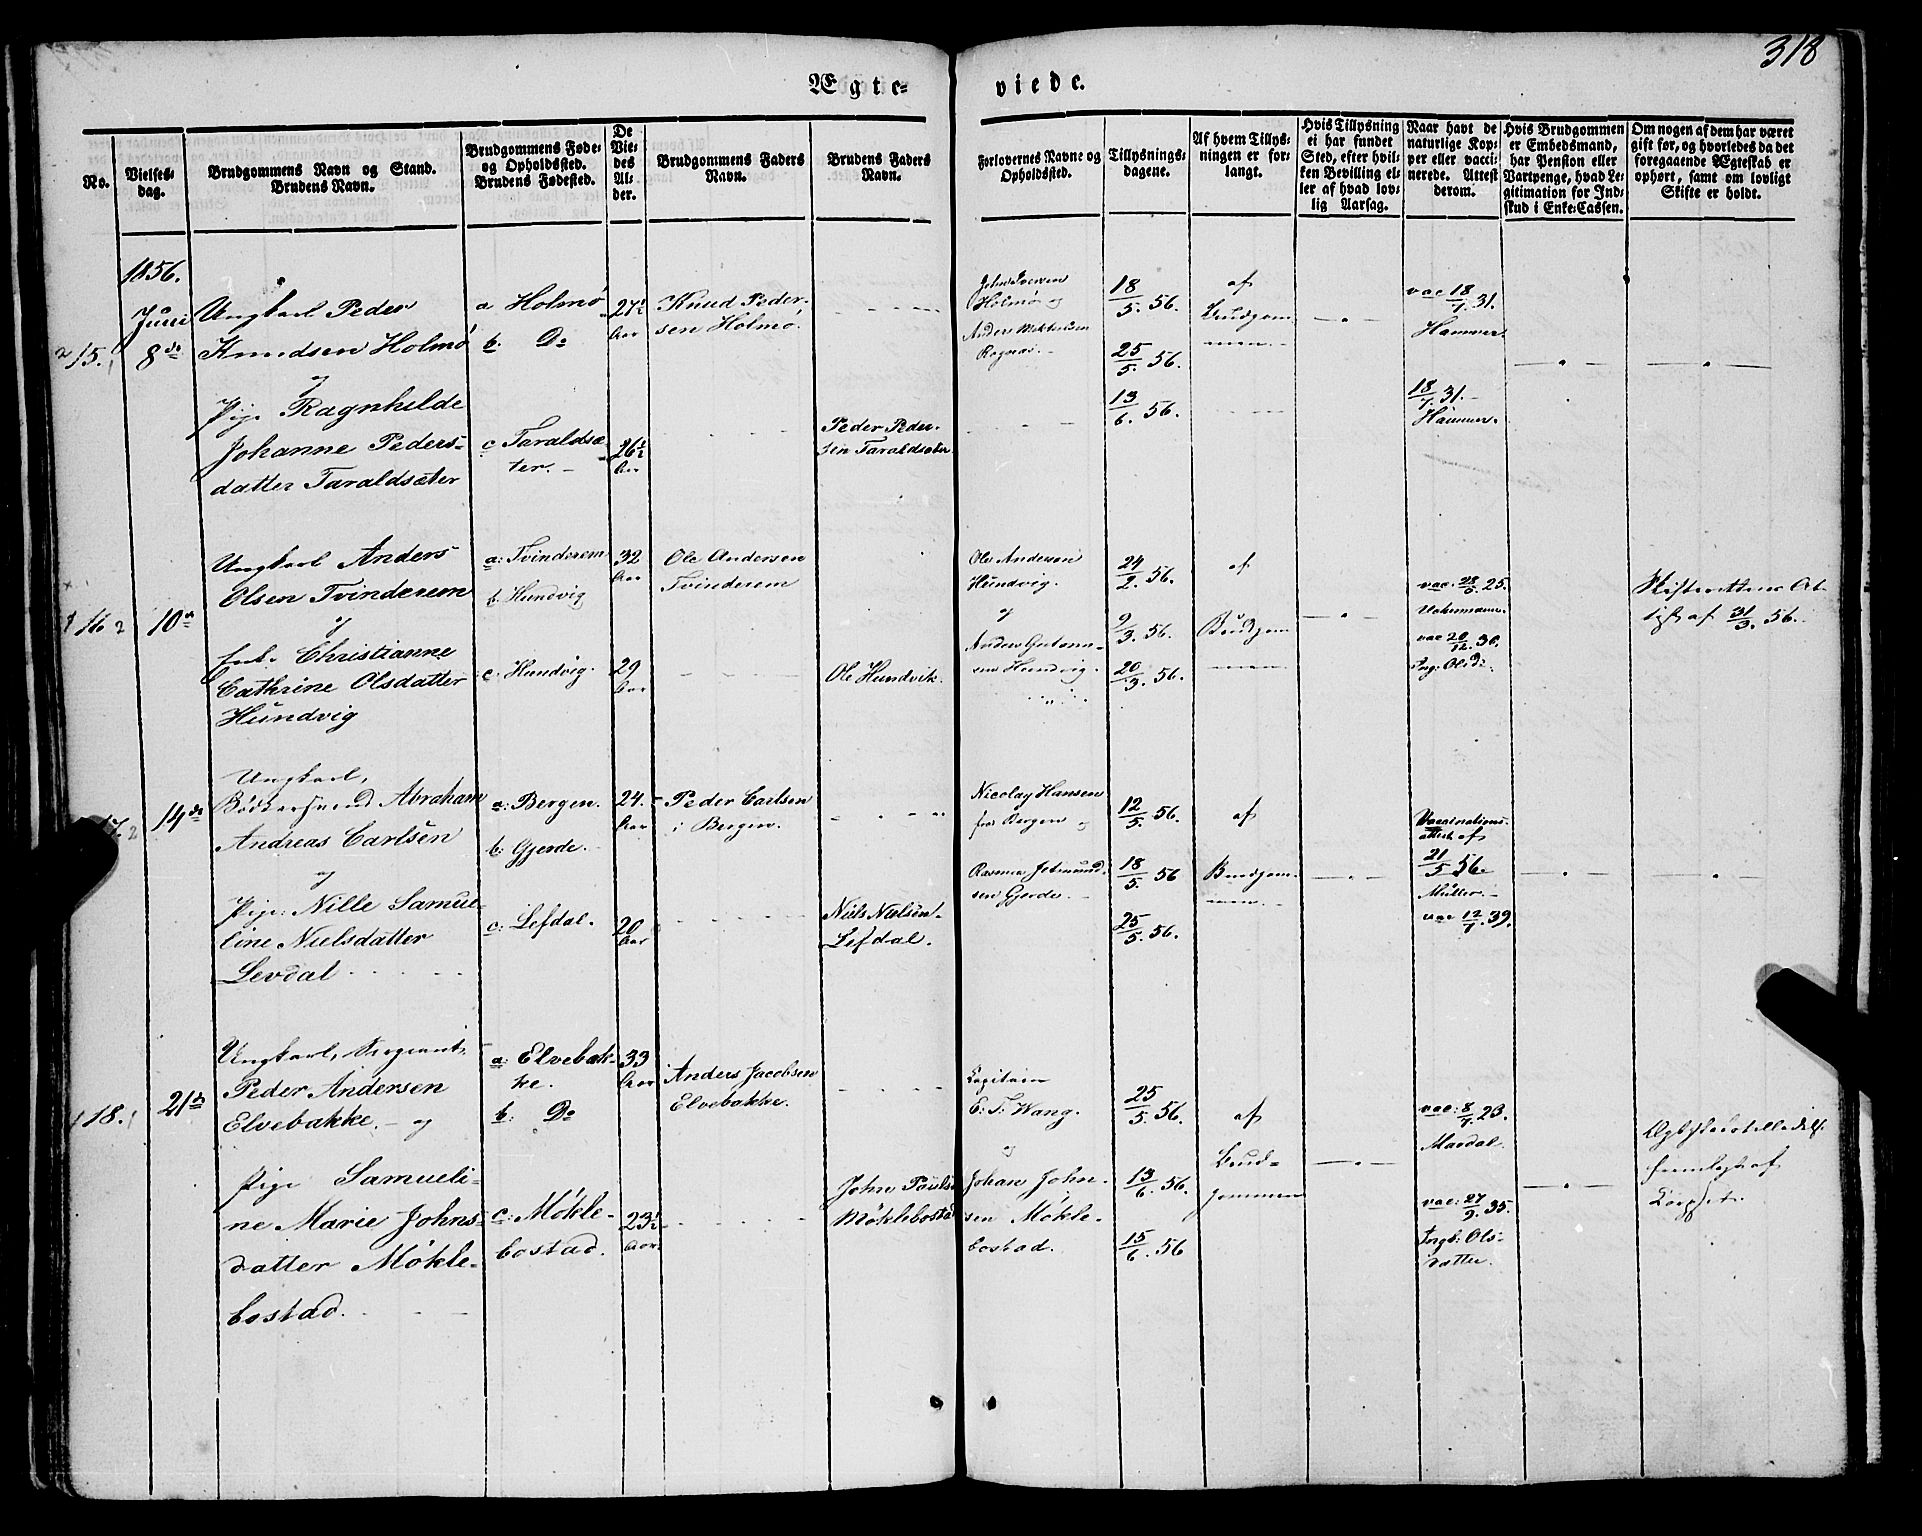 318
Ægte-
viede.
No.
Vielses-
dag.
Brudgommens Navn og Stand.
Brudens Navn.
Brudgommens Føde-
og Opholdssted.
Brudens Fødested.
De
Vie-
des
Al-
der.
Brudgommens Faders
Navn.
Brudens Faders
Navn.
Forlovernes Navne og
Opholdssted.
Tillysnings-
dagene.
Af hvem Tillys-
ningen er for-
langt.
Hvis Tillysning
ei har fundet
Sted, efter hvil-
ken Bevilling el-
ler af hvad lov-
lig Aarsag.
Naar havt de
naturlige Kop-
per eller vacci-
nerede. Attest
derom.
Hvis Brudgommen
er Embedsmand,
har Pension eller
Vartpenge, hvad Le-
gitimation for Ind-
skud i Enke-Cassen.
Om nogen af dem har været
gift før, og hvorledes da det
foregaaende Ægteskab er
ophørt, samt om lovligt
Skifte er holdt.
1856.
15.
Juni
8de
Ungkarl Peder
Knudsen Holmö
og
Pige Ragnhilde
Johanne Peders-
datter Taraldsæter
a Holmö
b. Do
c Taraldsæ-
ter.
27½
Aar
26½
Aar
Knud Peder-
sen Holmö.
Peder Peder-
sen Taraldsæter
John Iversen
Holmö og
Anders
18/5. 56.
25/5. 56.
13/6. 56.
af
Brudgom-
men.
vac 18/7. 31.
Hammer.
18/7. 31.
Hammer.
16
10de
Ungkarl Anders
Olsen Tvinderem
og
Christianne
Cathrine Olsdatter
Hundvig
a: Tvinderem
b. Hundvig
c. Hundvig.
32
Aar
29
Aar
Ole Andersen
Tvinderem
Ole Hundvik.
Ole Andersen
Hundvig.
og
Anders
sen Hundvig.
24/2. 56.
9/3. 56.
20/3. 56.
af
Brudgom-
men
vac: 28/6. 25.
vac 20/12. 30.
Ing: Olsd:
Skifterettens At-
test af 31/3. 56.
17.
14de
Ungkarl,
Bödkersvend Abraham
Andreas Carlsen
og
Pige: Nille Samue-
line Nielsdatter
Levdal
a: Bergen.
b: Gjerde.
c: Lefdal.
24.
Aar
20
Aar
Peder Carlsen
i Bergen.
Niels Nielsen
Lefdal.
Nicolay Hansen
fra Bergen og
Rasmus
sen Gjerde.
12/5. 56.
18/5. 56
25/5. 56.
af
Brudgom-
men.
Vaccinations-
attest af
21/5 56.
Müller.
vac 12/7. 39.
18.
21de
Ungkarl, Sergeant
Peder Andersen
Elvebakke. og
Pige Samueli-
ne Marie Johns-
datter Mökle-
bostad.
a: Elvebak-
ke.
b: Do
c: Mökle-
bostad.
33
Aar
23½
Aar
Anders Jacobsen
Elvebakke.
John Pauls.
Möklebostad
Capitain
E: T: Wang.
og
Johan John-
sen Mökle-
bostad.
25/5. 56.
13/6. 56.
15/6. 56
af
Brud-
gommen
vac: 8/7. 23.
Mardal.
vac: 27/9. 35.
Ingb: Ols-
datter.
Ægteskabstilladelse
fremlagt af
Corpset.